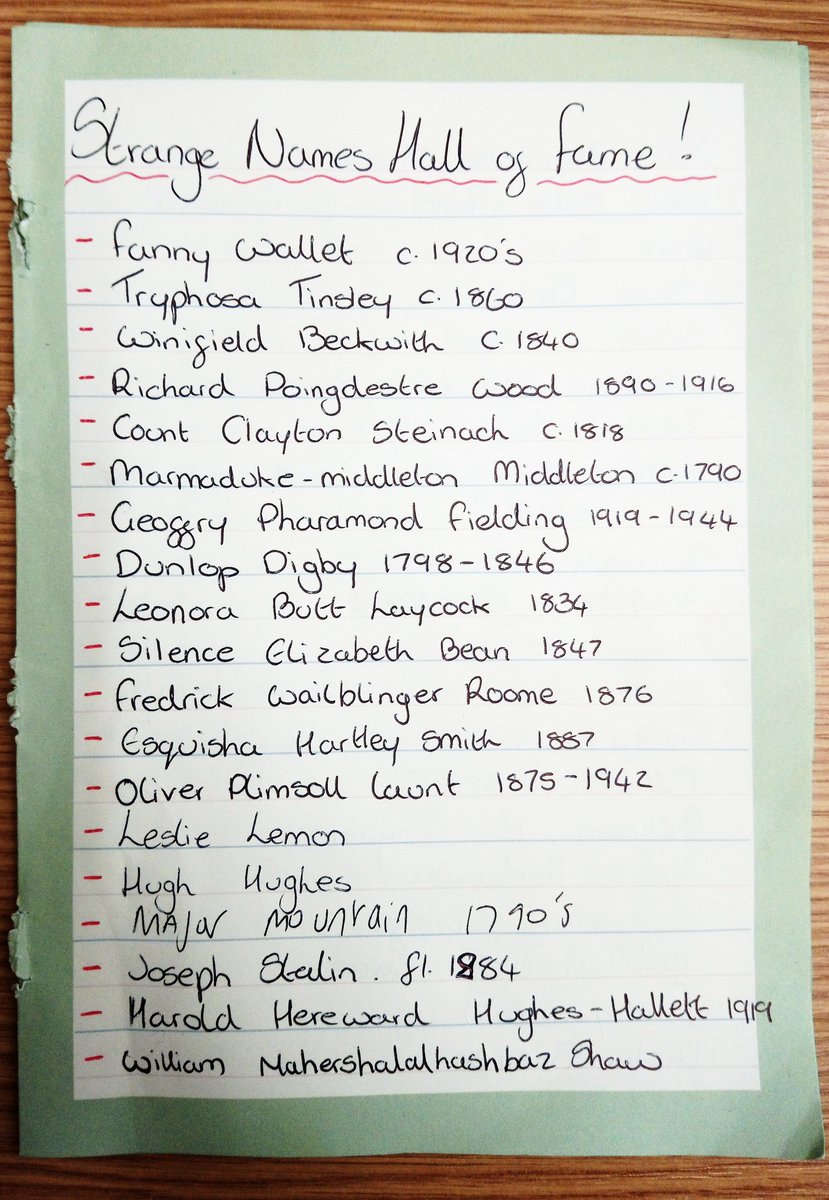 Strange Names Hall of Fame!
- Fanny Wallet c. 1920's
- Tryphosa Tinsley c. 1860
- Winifield Beckwith c. 1840
- Richard Poingdestre Wood 1890-1916
- Count Clayton Steinach c. 1818
- Marmaduke-middleton Middleton c.1790
- Geoffry Pharamond Fielding 1919-1944
- Dunlop Digby 1798-1846
- Leonora Butt Laycock 1834
- Silence Elizabeth Bean 1847
- Fredrick Wailblinger Roome 1876
- Esquisha Hartley Smith 1887
- Oliver Plimsoll Launt 1875-1942
- Leslie Lemon
- Hugh Hughes
- Major Mountain 1790's
- Joseph Stalin. fl. 1884
- Harold Hereward Hughes-Hallett 1919
- William Mahershalalhashbaz Shaw